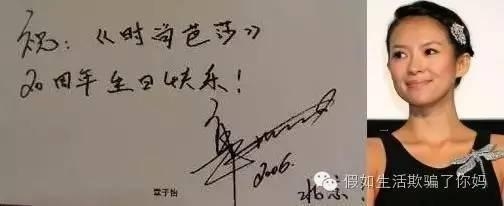 祝：《时尚芭莎》
20周年生日快乐！
章
2006.
章子怡
北京
假如生活欺骗了你妈